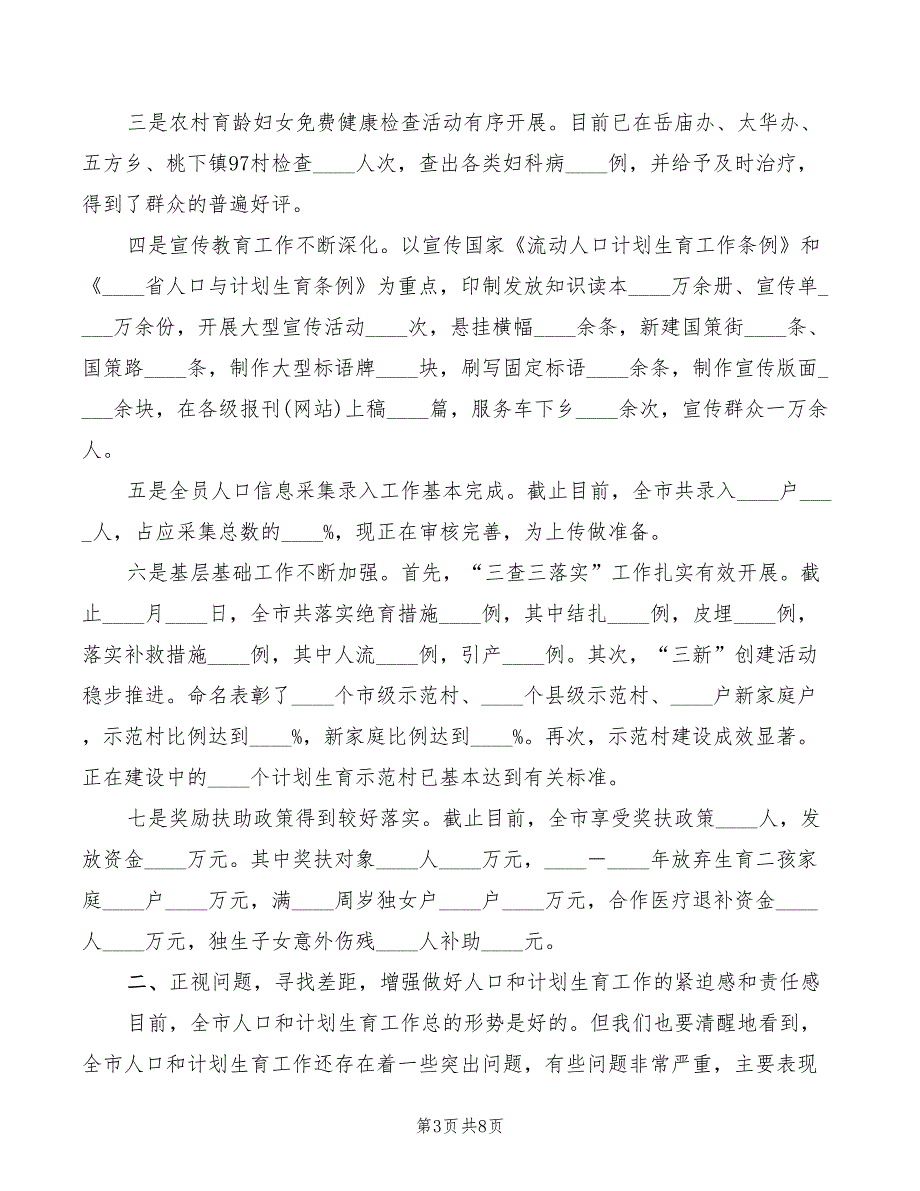 三是农村育龄妇女免费健康检查活动有序开展。目前已在岳庙办、太华办、
五方乡、桃下镇97村检查____人次，查出各类妇科病____例，并给予及时治疗，
得到了群众的普遍好评。
四是宣传教育工作不断深化。以宣传国家《流动人口计划生育工作条例》和
《____省人口与计划生育条例》为重点，印制发放知识读本____万余册、宣传单_
___万余份，开展大型宣传活动____次，悬挂横幅____余条，新建国策街____条、
国策路____条，制作大型标语牌____块，刷写固定标语____余条，制作宣传版面_
___余块，在各级报刊(网站)上稿____篇，服务车下乡____余次，宣传群众一万余
人。
五是全员人口信息采集录入工作基本完成。截止目前，全市共录入____户___
_人，占应采集总数的____%，现正在审核完善，为上传做准备。
六是基层基础工作不断加强。首先，“三查三落实”工作扎实有效开展。截
止____月____日，全市共落实绝育措施____例，其中结扎____例，皮埋____例，
落实补救措施____例，其中人流____例，引产____例。其次，“三新”创建活动
稳步推进。命名表彰了____个市级示范村、____个县级示范村、____户新家庭户
，示范村比例达到____%，新家庭比例达到____%。再次，示范村建设成效显著。
正在建设中的____个计划生育示范村已基本达到有关标准。
七是奖励扶助政策得到较好落实。截止目前，全市享受奖扶政策____人，发
放资金____万元。其中奖扶对象____人____万元，____－____年放弃生育二孩家
庭____户____万元，满____周岁独女户____户____万元，合作医疗退补资金____
人____万元，独生子女意外伤残____人补助____元。
二、正视问题，寻找差距，增强做好人口和计划生育工作的紧迫感和责任感
目前，全市人口和计划生育工作总的形势是好的。但我们也要清醒地看到，
全市人口和计划生育工作还存在着一些突出问题，有些问题非常严重，主要表现
第3页 共8页